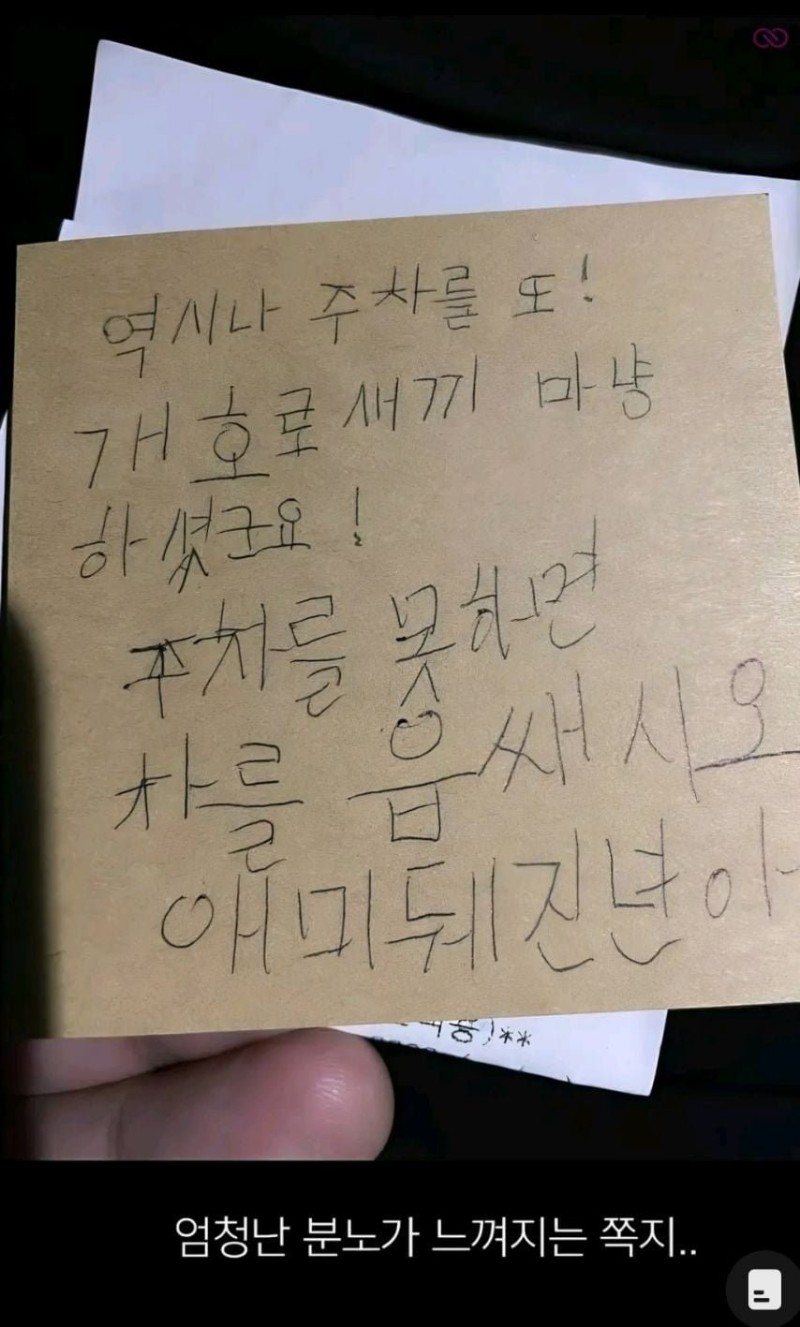 역시나 주차를 또!
개호로새끼 마냥
하셨군요!
주차를 못하면
차를 읍쌔시오
애미뒈진년아
엄청난 분노가 느껴지는 쪽지..